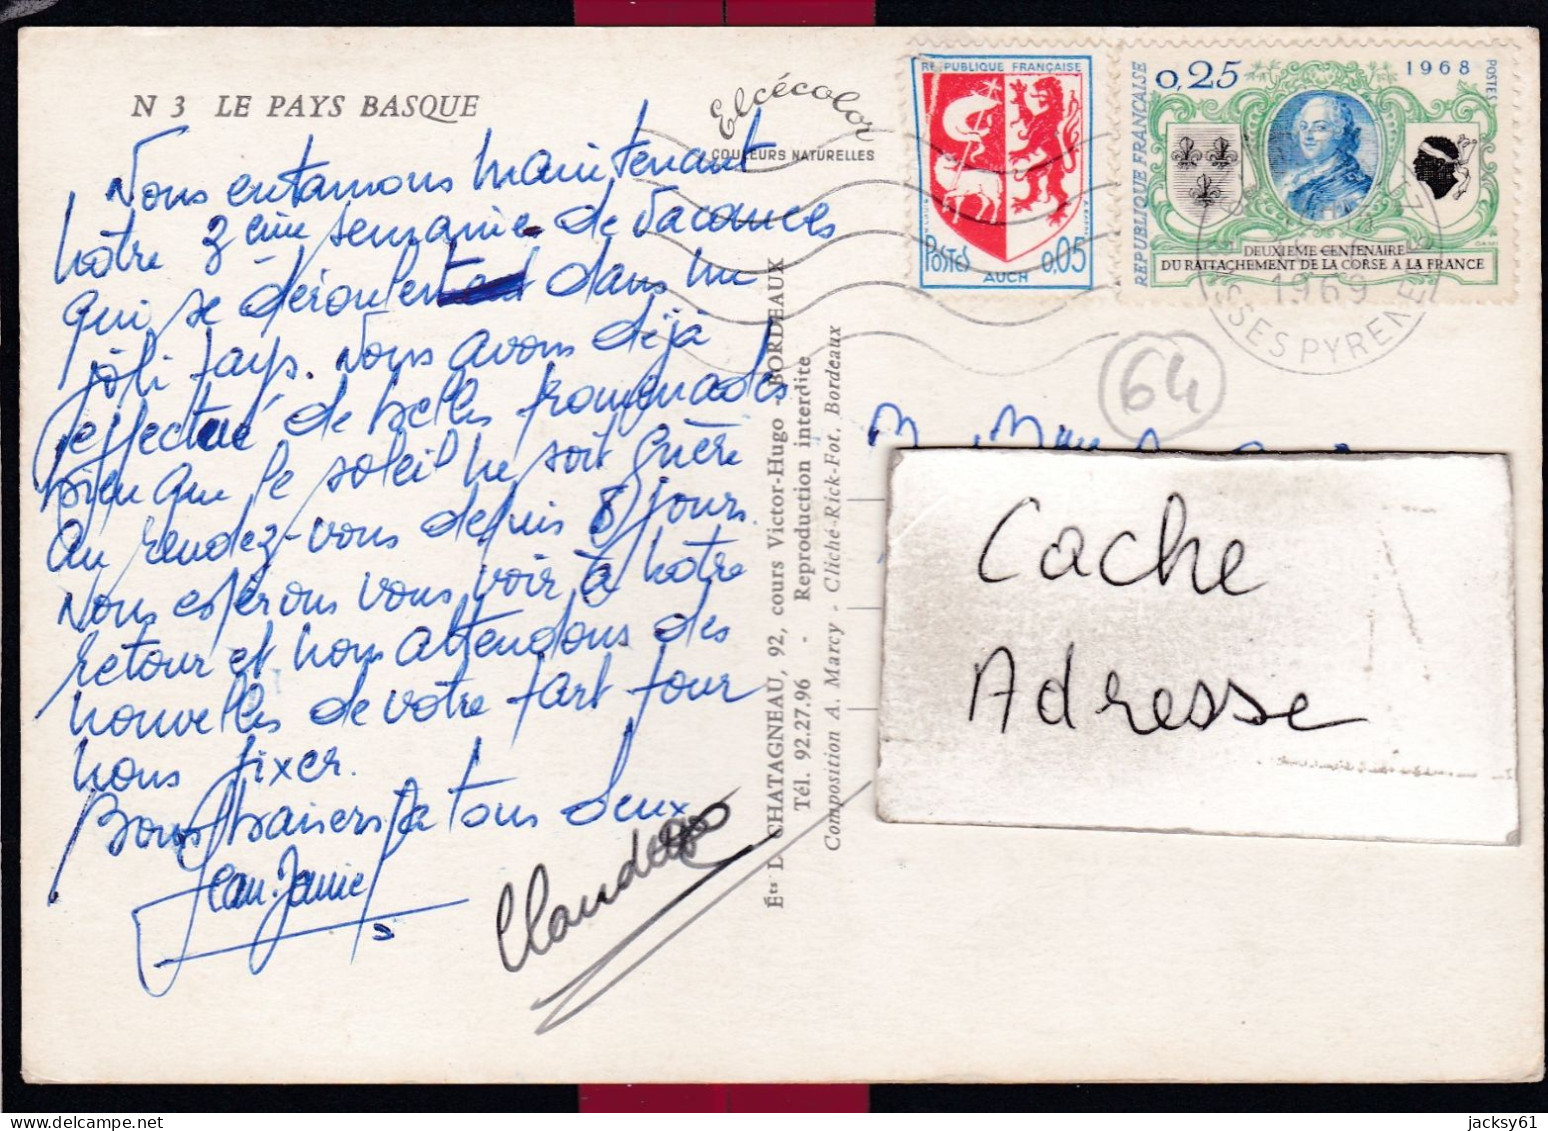 N 3 LE PAYS BASQUE
Nous entamons maintenant
notre 3ème semaine de vacances
qui se déroulent dans un
joli pays. Nous avons déjà
effectué de belles promenades
bien que le soleil ne soit guère
au rendez-vous depuis 8 jours.
Nous espérons vous voir à notre
retour et nous attendons des
nouvelles de votre part pour
nous fixer.
Bons baisers à tous deux
Claude
Elcécolor
COULEURS NATURELLES
Éts L. CHATAGNEAU, 92, cours Victor-Hugo - BORDEAUX
Tél. 92.27.96 - Reproduction interdite
Composition A. Marcy - Cliché-Rick-Fot, Bordeaux
REPUBLIQUE FRANÇAISE
POSTES
0,05
AUCH
REPUBLIQUE FRANÇAISE
0,25
1968
POSTES
DEUXIEME CENTENAIRE
DU RATTACHEMENT DE LA CORSE A LA FRANCE
1969
SES PYRENEES
64
M. Mme
Cache
Adresse
jacksy61